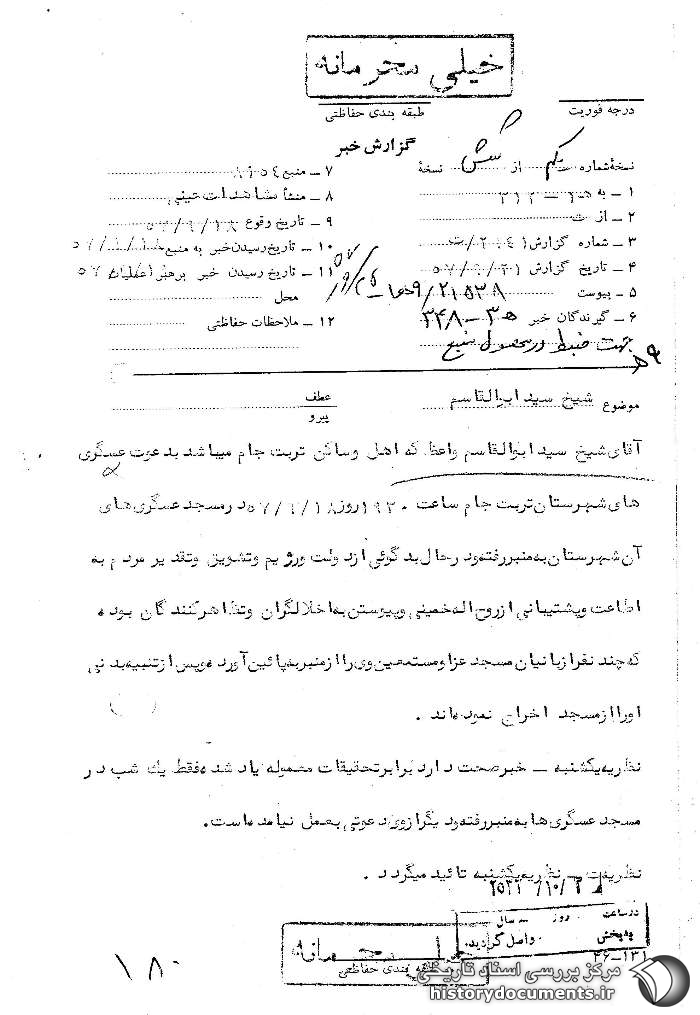 خیلی محرمانه
درجه فوریت
طبقه بندی حفاظتی
گزارش خبر
نسخهٔ شماره یکم از شش نسخهٔ
۱ ـ به
۲ ـ از
۳ ـ شماره گزارش
۴ ـ تاریخ گزارش
۵ ـ پیوست
۶ ـ گیرندگان خبر
جهت ضبط در محصول منبع
۷ ـ منبع
۸ ـ منشأ مشاهدات عینی
۹ ـ تاریخ وقوع ۵۷/۹/۱۸
۱۰ ـ تاریخ رسیدن خبر به منبع
۱۱ ـ تاریخ رسیدن خبر برهبر عملیات
محل
۱۲ ـ ملاحظات حفاظتی
موضوع شیخ سید ابوالقاسم
عطف
پیرو
آقای شیخ سید ابوالقاسم واعظ که اهل و ساکن تربت جام میباشد بدعوت عسگری
های شهرستان تربت جام ساعت ۱۹۳۰ روز ۵۷/۹/۱۸ در مسجد عسگری های
آن شهرستان به منبر رفته و در حال بدگوئی از دولت و رژیم و تشویق و تقدیر مردم به
اطاعت و پشتیبانی از روح اله خمینی و پیوستن به اخلالگران و تظاهرکنندگان بوده
که چند نفر از بانیان مسجد عزا و مستمعین وی را از منبر به پائین آورده و پس از تنبیه بدنی
او را از مسجد اخراج نموده اند .
نظریه یکشنبه ـ خبر صحت دارد برابر تحقیقات معموله یاد شده فقط یک شب در
مسجد عسگری ها به منبر رفته و دیگر از وی دعوتی بعمل نیامده است.
نظریه ـ نظریه یکشنبه تائید میگردد .
در ساعت روز سال
به پخش واصل گردید.
خیلی محرمانه
طبقه بندی حفاظتی
۳۶-۱۳۱
۱۸۰
مرکز بررسی اسناد تاریخی
historydocuments.ir